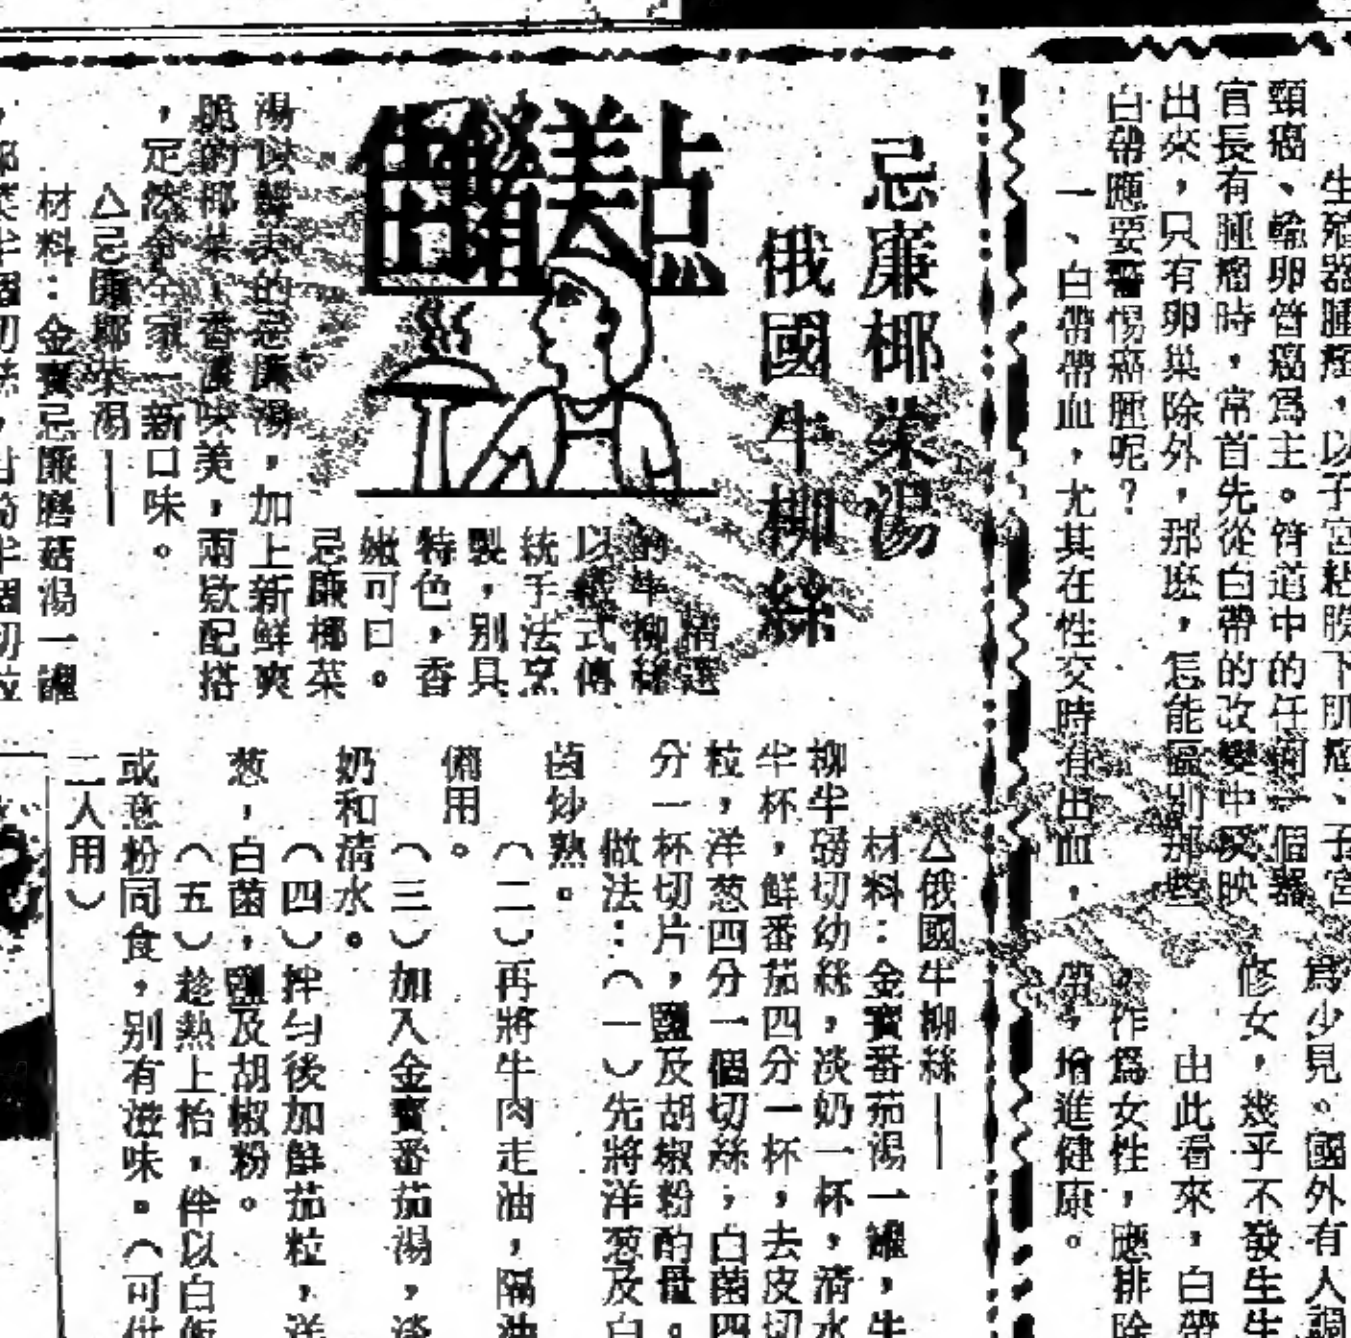 生殖器腫瘤，以子宮粘膜下肌瘤、子宮
頸癌、輸卵管癌爲主。管道中的任何一個器
官長有腫瘤時，常首先從白帶的改變中反映
出來，只有卵巢除外，那麽，怎能區別那些
白帶應要警惕癌腫呢？
一、白帶帶血，尤其在性交時有出血，
爲少見。國外有人調
修女，幾乎不發生生
由此看來，白帶
，作爲女性，應排除
帶，增進健康。
忌廉椰菜湯
俄國牛柳絲
佳餚美点
精選
的牛柳絲
以 式傳
統手法烹
製，別具
特色，香
嫩可口。
忌廉椰菜
湯以鮮 的忌廉湯，加上新鮮爽
脆的椰菜，香濃味美，兩款配搭
，定然令全家一新口味。
△忌廉椰菜湯——
材料：金寶忌廉磨菇湯一罐
，椰菜半個切絲，
△俄國牛柳絲——
材料：金寶番茄湯一罐，牛
柳半磅切幼絲，淡奶一杯，清水
半杯，鮮番茄四分一杯，去皮切
粒，洋葱四分一個切絲；白菌四
分一杯切片，鹽及胡椒粉酌量。
做法：（一）先將洋葱及白
菌炒熟。
（二）再將牛肉走油，隔油
備用。
（三）加入金寶番茄湯，淡
奶和清水。
（四）拌勻後加鮮茄粒，洋
葱，白菌，鹽及胡椒粉。
（五）趁熱上枱，伴以白飯
或意粉同食，別有滋味。（可供
二人用）